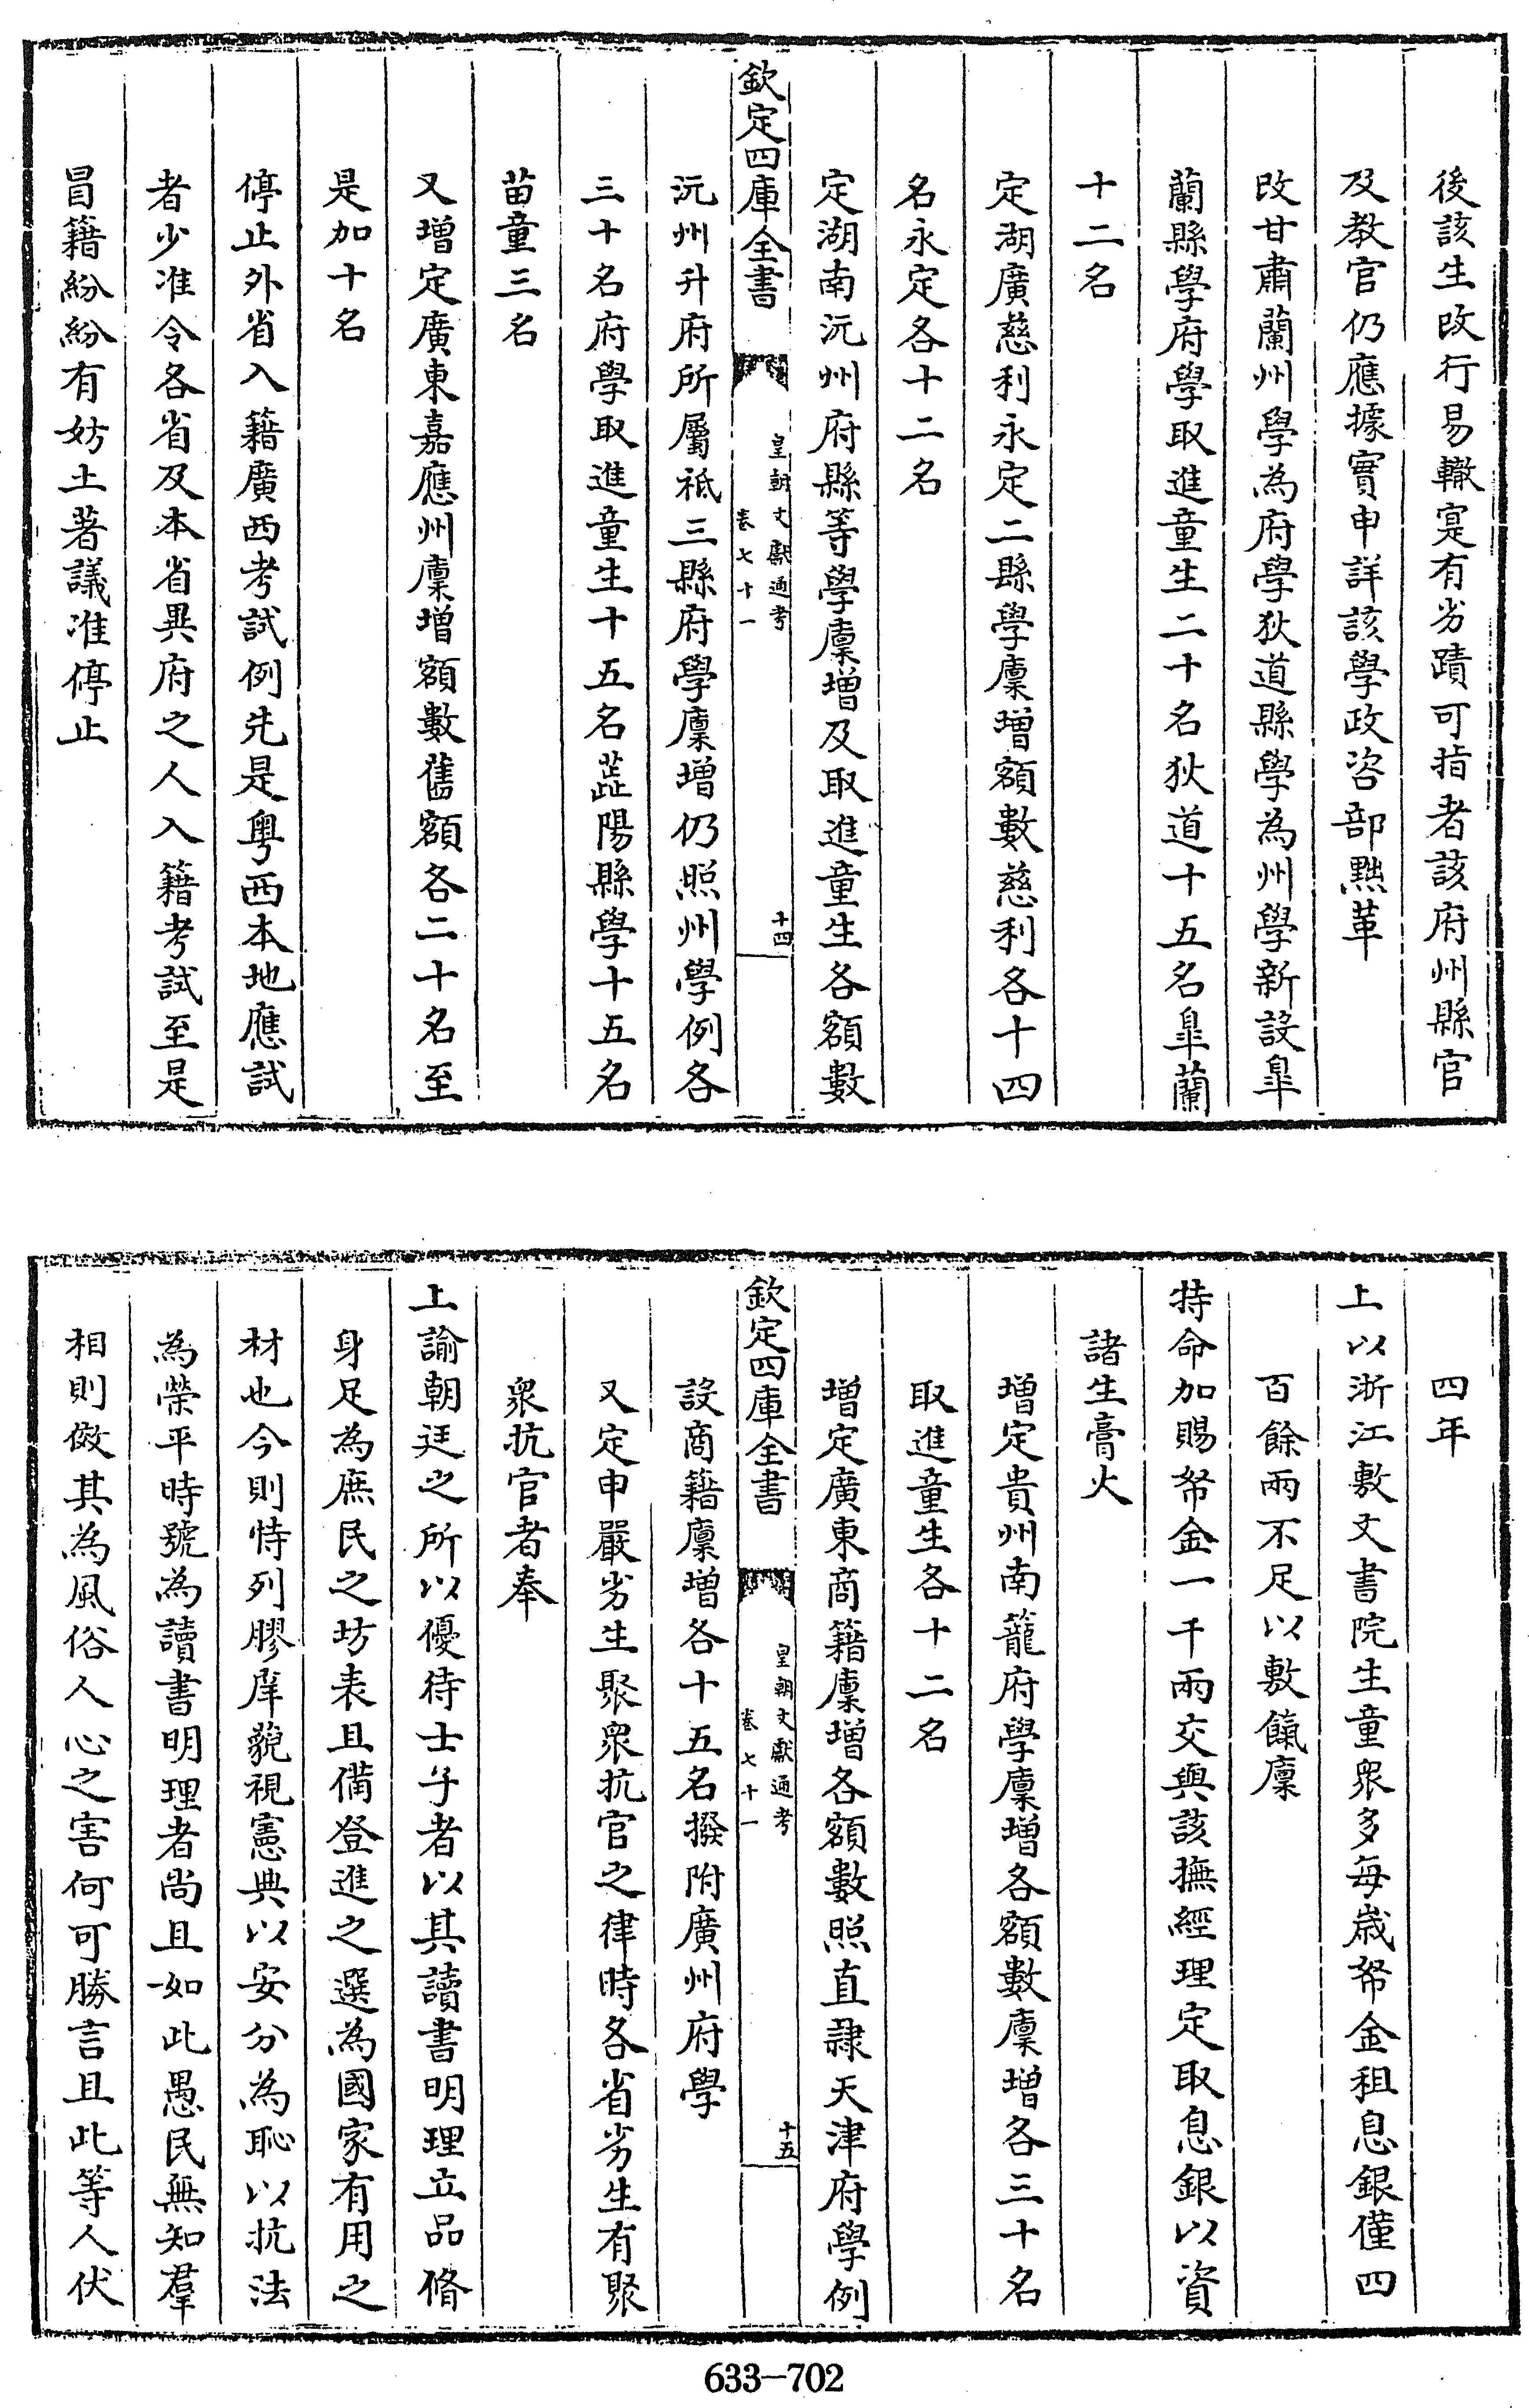 後該生改行易轍寔有劣蹟可指者該府州縣官
及教官仍應據實申詳該學政咨部黙革
改甘肅蘭州學為府學狄道縣學為州學新設臯
蘭縣學府學取進童生二十名狄道十五名臯蘭
十二名
定湖廣慈利永定二縣學廩增額數慈利各十四
名永定各十二名
定湖南沅州府縣等學廩增及取進童生各額數
欽定四庫全書
皇朝文獻通考
卷七十一
十四
沅州升府所屬祗三縣府學廩增仍照州學例各
三十名府學取進童生十五名芷陽縣學十五名
苗童三名
又增定廣東嘉應州廩增額數舊額各二十名至
是加十名
停止外省入籍廣西考試例先是粤西本地應試
者少准令各省及本省異府之人入籍考試至是
冒籍紛紛有妨土著議准停止
四年
上以浙江敷文書院生童衆多每嵗帑金租息銀僅四
百餘兩不足以敷餼廩
特命加賜帑金一千兩交與該撫經理定取息銀以資
諸生膏火
增定貴州南籠府學廩增各額數廩增各三十名
取進童生各十二名
增定廣東商籍廩增各額數照直隷天津府學例
欽定四庫全書
皇朝文獻通考
卷七十一
十五
設商籍廩增各十五名撥附廣州府學
又定申嚴劣生聚衆抗官之律時各省劣生有聚
衆抗官者奉
上諭朝廷之所以優待士子者以其讀書明理立品脩
身足為庶民之坊表且備登進之選為國家有用之
材也今則恃列膠庠藐視憲典以安分為恥以抗法
為榮平時號為讀書明理者尚且如此愚民無知羣
相則傚其為風俗人心之害何可勝言且此等人伏
633-702